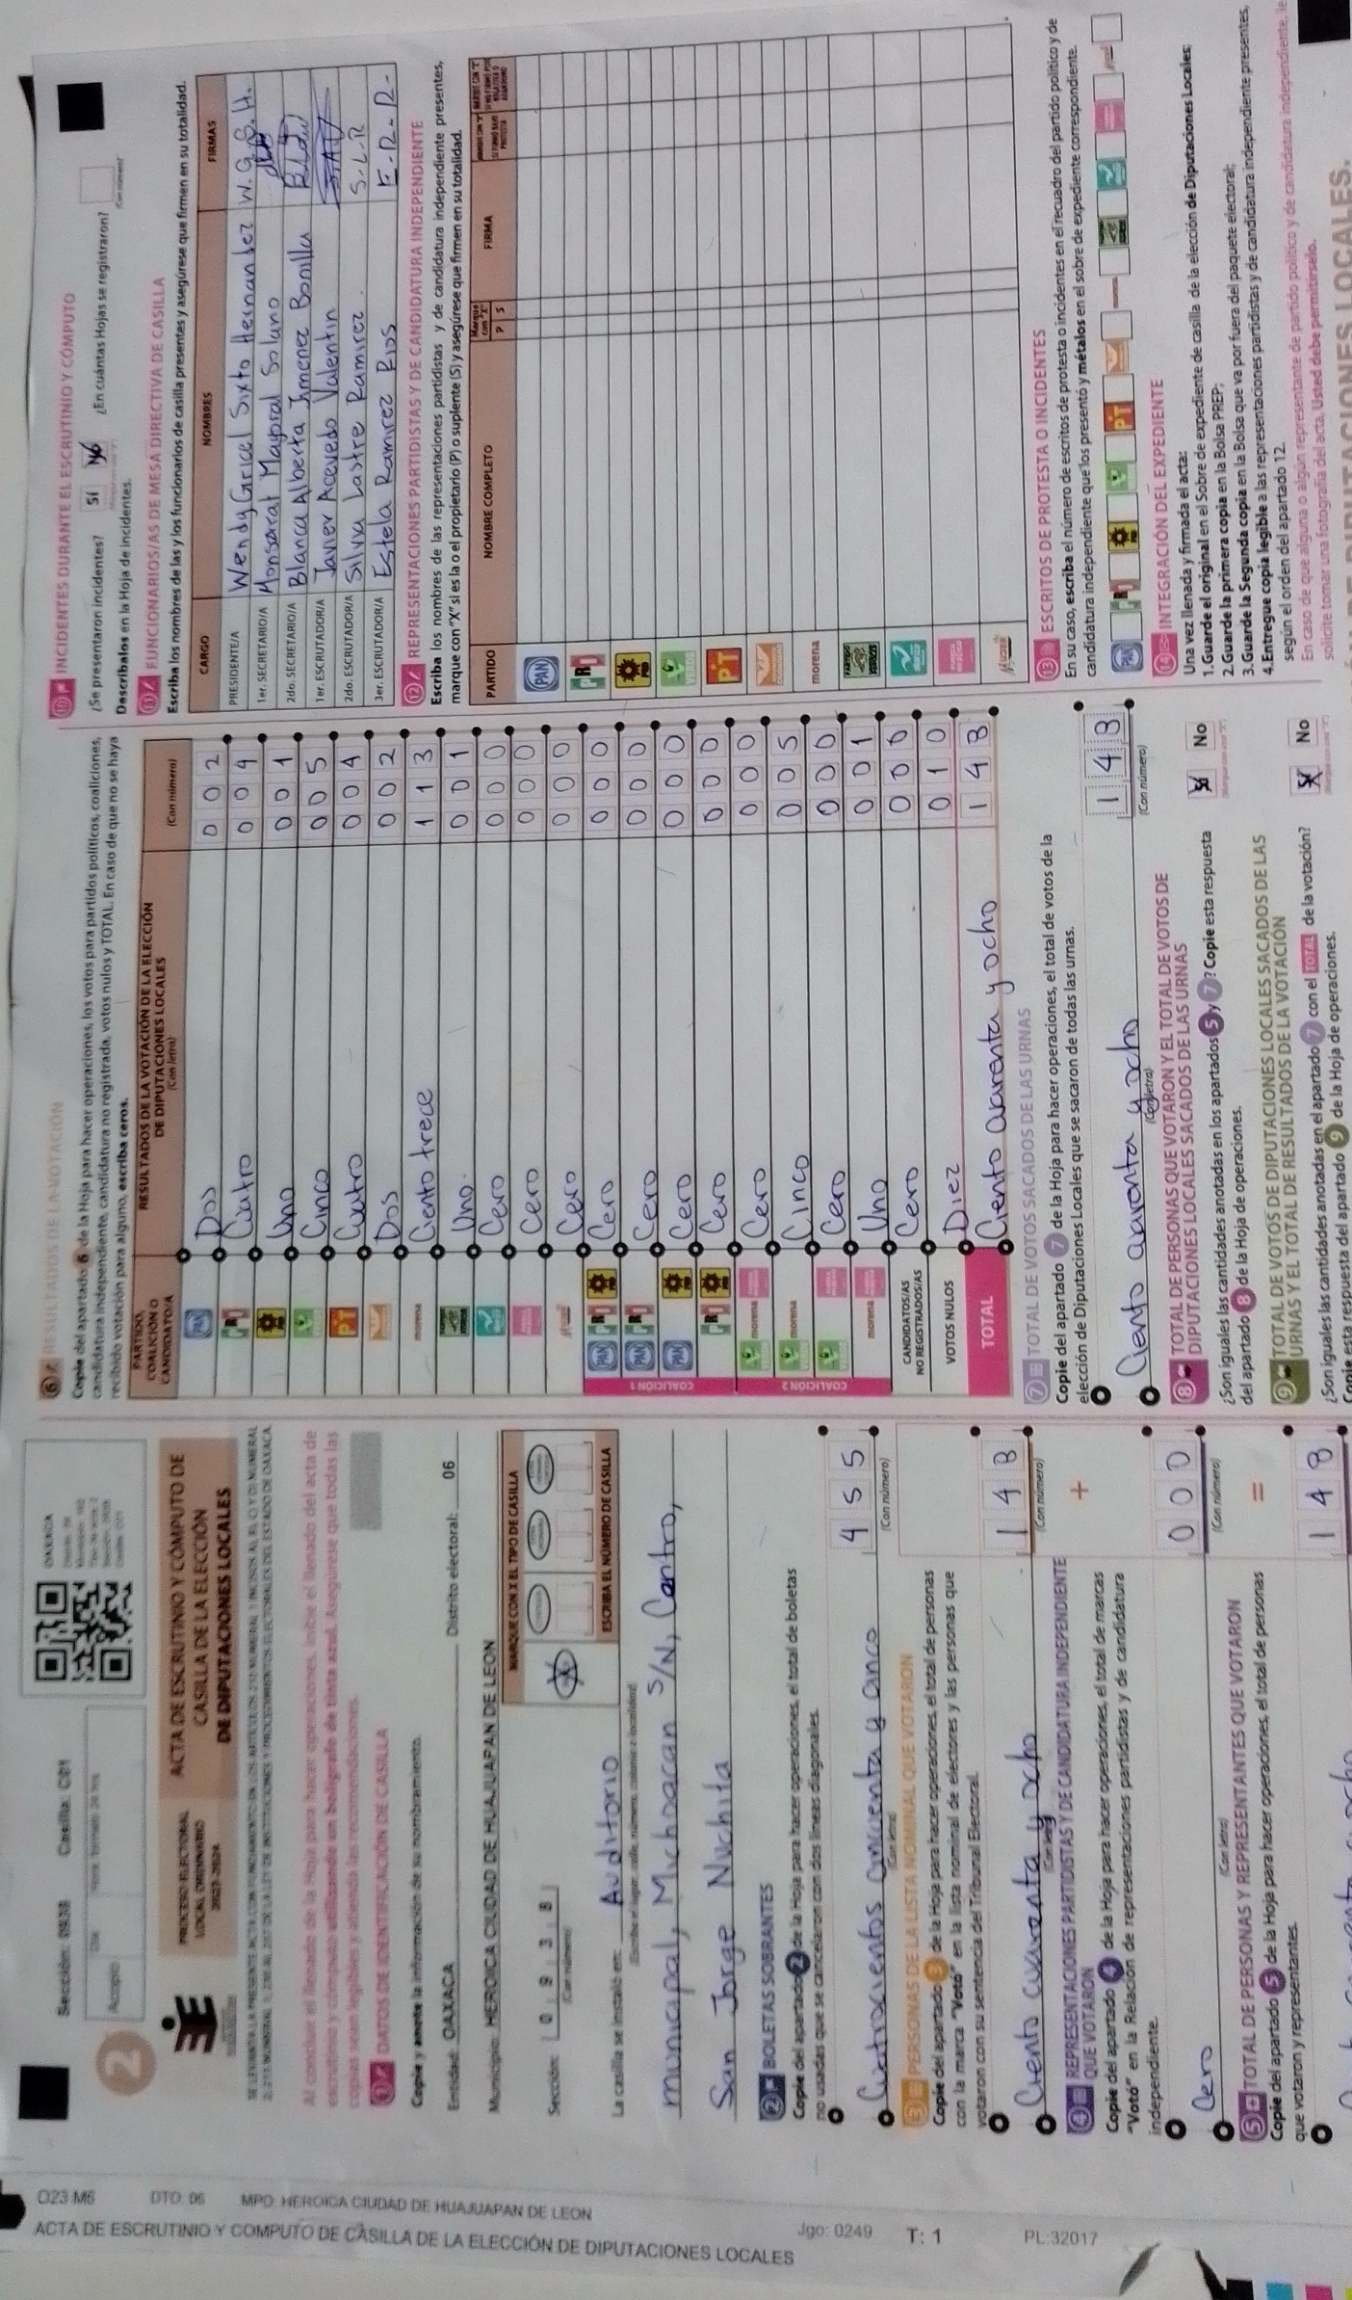 O23 M6
DTO: 06
MPO: HEROICA CIUDAD DE HUAJUAPAN DE LEON
ACTA DE ESCRUTINIO Y CÓMPUTO DE CASILLA DE LA ELECCIÓN DE DIPUTACIONES LOCALES
Jgo: 0249
T: 1
PL:32017
Sección: 0938 Casilla: C01
OAXACA
2
Acopio
PROCESO ELECTORAL
LOCAL ORDINARIO
2023-2024
ACTA DE ESCRUTINIO Y CÓMPUTO DE
CASILLA DE LA ELECCIÓN
DE DIPUTACIONES LOCALES
Al concluir el llenado de la Hoja para hacer operaciones, inicie el llenado del acta de
escrutinio y cómputo utilizando un bolígrafo de tinta azul. Asegúrese que todas las
copias sean legibles y atienda las recomendaciones.
1 DATOS DE IDENTIFICACIÓN DE CASILLA
Copie y anote la información de su nombramiento.
Entidad: OAXACA Distrito electoral: 06
Municipio: HEROICA CIUDAD DE HUAJUAPAN DE LEON
Sección: 0 9 3 8
(Con número)
MARQUE CON X EL TIPO DE CASILLA
ESCRIBA EL NÚMERO DE CASILLA
La casilla se instaló en: Auditorio
municipal, Michoacan S/N, Centro,
San Jorge Nuchita
2 BOLETAS SOBRANTES
Copie del apartado 2 de la Hoja para hacer operaciones, el total de boletas
no usadas que se cancelaron con dos líneas diagonales.
Cuatrocientos cincuenta y cinco 4 5 5
(Con letra) (Con número)
3 PERSONAS DE LA LISTA NOMINAL QUE VOTARON
Copie del apartado 3 de la Hoja para hacer operaciones, el total de personas
con la marca "Votó" en la lista nominal de electores y las personas que
votaron con su sentencia del Tribunal Electoral.
Ciento cuarenta y ocho 1 4 8
(Con letra) (Con número)
4 REPRESENTACIONES PARTIDISTAS Y DE CANDIDATURA INDEPENDIENTE
QUE VOTARON +
Copie del apartado 4 de la Hoja para hacer operaciones, el total de marcas
"Votó" en la Relación de representaciones partidistas y de candidatura
independiente.
Cero 0 0 0
(Con letra) (Con número)
5 TOTAL DE PERSONAS Y REPRESENTANTES QUE VOTARON =
Copie del apartado 5 de la Hoja para hacer operaciones, el total de personas
que votaron y representantes.
1 4 8
6 RESULTADOS DE LA VOTACIÓN
Copie del apartado 6 de la Hoja para hacer operaciones, los votos para partidos políticos, coaliciones,
candidatura independiente, candidatura no registrada, votos nulos y TOTAL. En caso de que no se haya
recibido votación para alguno, escriba ceros.
PARTIDO,
COALICIÓN O
CANDIDATO/A
RESULTADOS DE LA VOTACIÓN DE LA ELECCIÓN
DE DIPUTACIONES LOCALES
(Con letra)
(Con número)
PAN Dos 0 0 2
PRI Cuatro 0 0 4
PRD Uno 0 0 1
VERDE Cinco 0 0 5
PT Cuatro 0 0 4
Dos 0 0 2
morena Ciento trece 1 1 3
Uno. 0 0 1
Cero 0 0 0
Cero 0 0 0
Cero 0 0 0
COALICIÓN 1
PAN PRI PRD Cero 0 0 0
PAN PRI Cero 0 0 0
PAN PRD Cero 0 0 0
PRI PRD Cero 0 0 0
COALICIÓN 2
VERDE morena Cero 0 0 0
VERDE morena Cinco 0 0 5
VERDE Cero 0 0 0
morena Uno 0 0 1
CANDIDATOS/AS
NO REGISTRADOS/AS Cero 0 0 0
VOTOS NULOS Diez 0 1 0
TOTAL Ciento cuarenta y ocho 1 4 8
7 TOTAL DE VOTOS SACADOS DE LAS URNAS
Copie del apartado 7 de la Hoja para hacer operaciones, el total de votos de la
elección de Diputaciones Locales que se sacaron de todas las urnas.
Ciento cuarenta y ocho 1 4 8
(Con letra) (Con número)
8 TOTAL DE PERSONAS QUE VOTARON Y EL TOTAL DE VOTOS DE
DIPUTACIONES LOCALES SACADOS DE LAS URNAS
¿Son iguales las cantidades anotadas en los apartados 5 y 7? Copie esta respuesta
del apartado 8 de la Hoja de operaciones.
Sí No
9 TOTAL DE VOTOS DE DIPUTACIONES LOCALES SACADOS DE LAS
URNAS Y EL TOTAL DE RESULTADOS DE LA VOTACIÓN
¿Son iguales las cantidades anotadas en el apartado 7 con el TOTAL de la votación?
Copie esta respuesta del apartado 9 de la Hoja de operaciones.
Sí No
10 INCIDENTES DURANTE EL ESCRUTINIO Y CÓMPUTO
¿Se presentaron incidentes? Sí No ¿En cuántas Hojas se registraron?
(Con número)
Descríbalos en la Hoja de incidentes.
11 FUNCIONARIOS/AS DE MESA DIRECTIVA DE CASILLA
Escriba los nombres de las y los funcionarios de casilla presentes y asegúrese que firmen en su totalidad.
CARGO NOMBRES FIRMAS
PRESIDENTE/A Wendy Gricel Sixto Hernandez W.G.S.H.
1er. SECRETARIO/A Monserat Mayoral Solano
2do. SECRETARIO/A Blanca Alberta Jimenez Bonilla
1er. ESCRUTADOR/A Javier Acevedo Valentin
2do. ESCRUTADOR/A Silvia Lastre Ramirez. S.L.R
3er. ESCRUTADOR/A Estela Ramirez Rios E.R.R.
12 REPRESENTACIONES PARTIDISTAS Y DE CANDIDATURA INDEPENDIENTE
Escriba los nombres de las representaciones partidistas y de candidatura independiente presentes,
marque con "X" si es la o el propietario (P) o suplente (S) y asegúrese que firmen en su totalidad.
PARTIDO NOMBRE COMPLETO Marque con "X" P S FIRMA
PAN
PRI
PRD
VERDE
PT
morena
13 ESCRITOS DE PROTESTA O INCIDENTES
En su caso, escriba el número de escritos de protesta o incidentes en el recuadro del partido político y de
candidatura independiente que los presentó y métalos en el sobre de expediente correspondiente.
14 INTEGRACIÓN DEL EXPEDIENTE
Una vez llenada y firmada el acta:
1. Guarde el original en el Sobre de expediente de casilla de la elección de Diputaciones Locales;
2. Guarde la primera copia en la Bolsa PREP;
3. Guarde la Segunda copia en la Bolsa que va por fuera del paquete electoral;
4. Entregue copia legible a las representaciones partidistas y de candidatura independiente presentes,
según el orden del apartado 12.
En caso de que alguna o algún representante de partido político y de candidatura independiente, le
solicite tomar una fotografía del acta, Usted debe permitírselo.